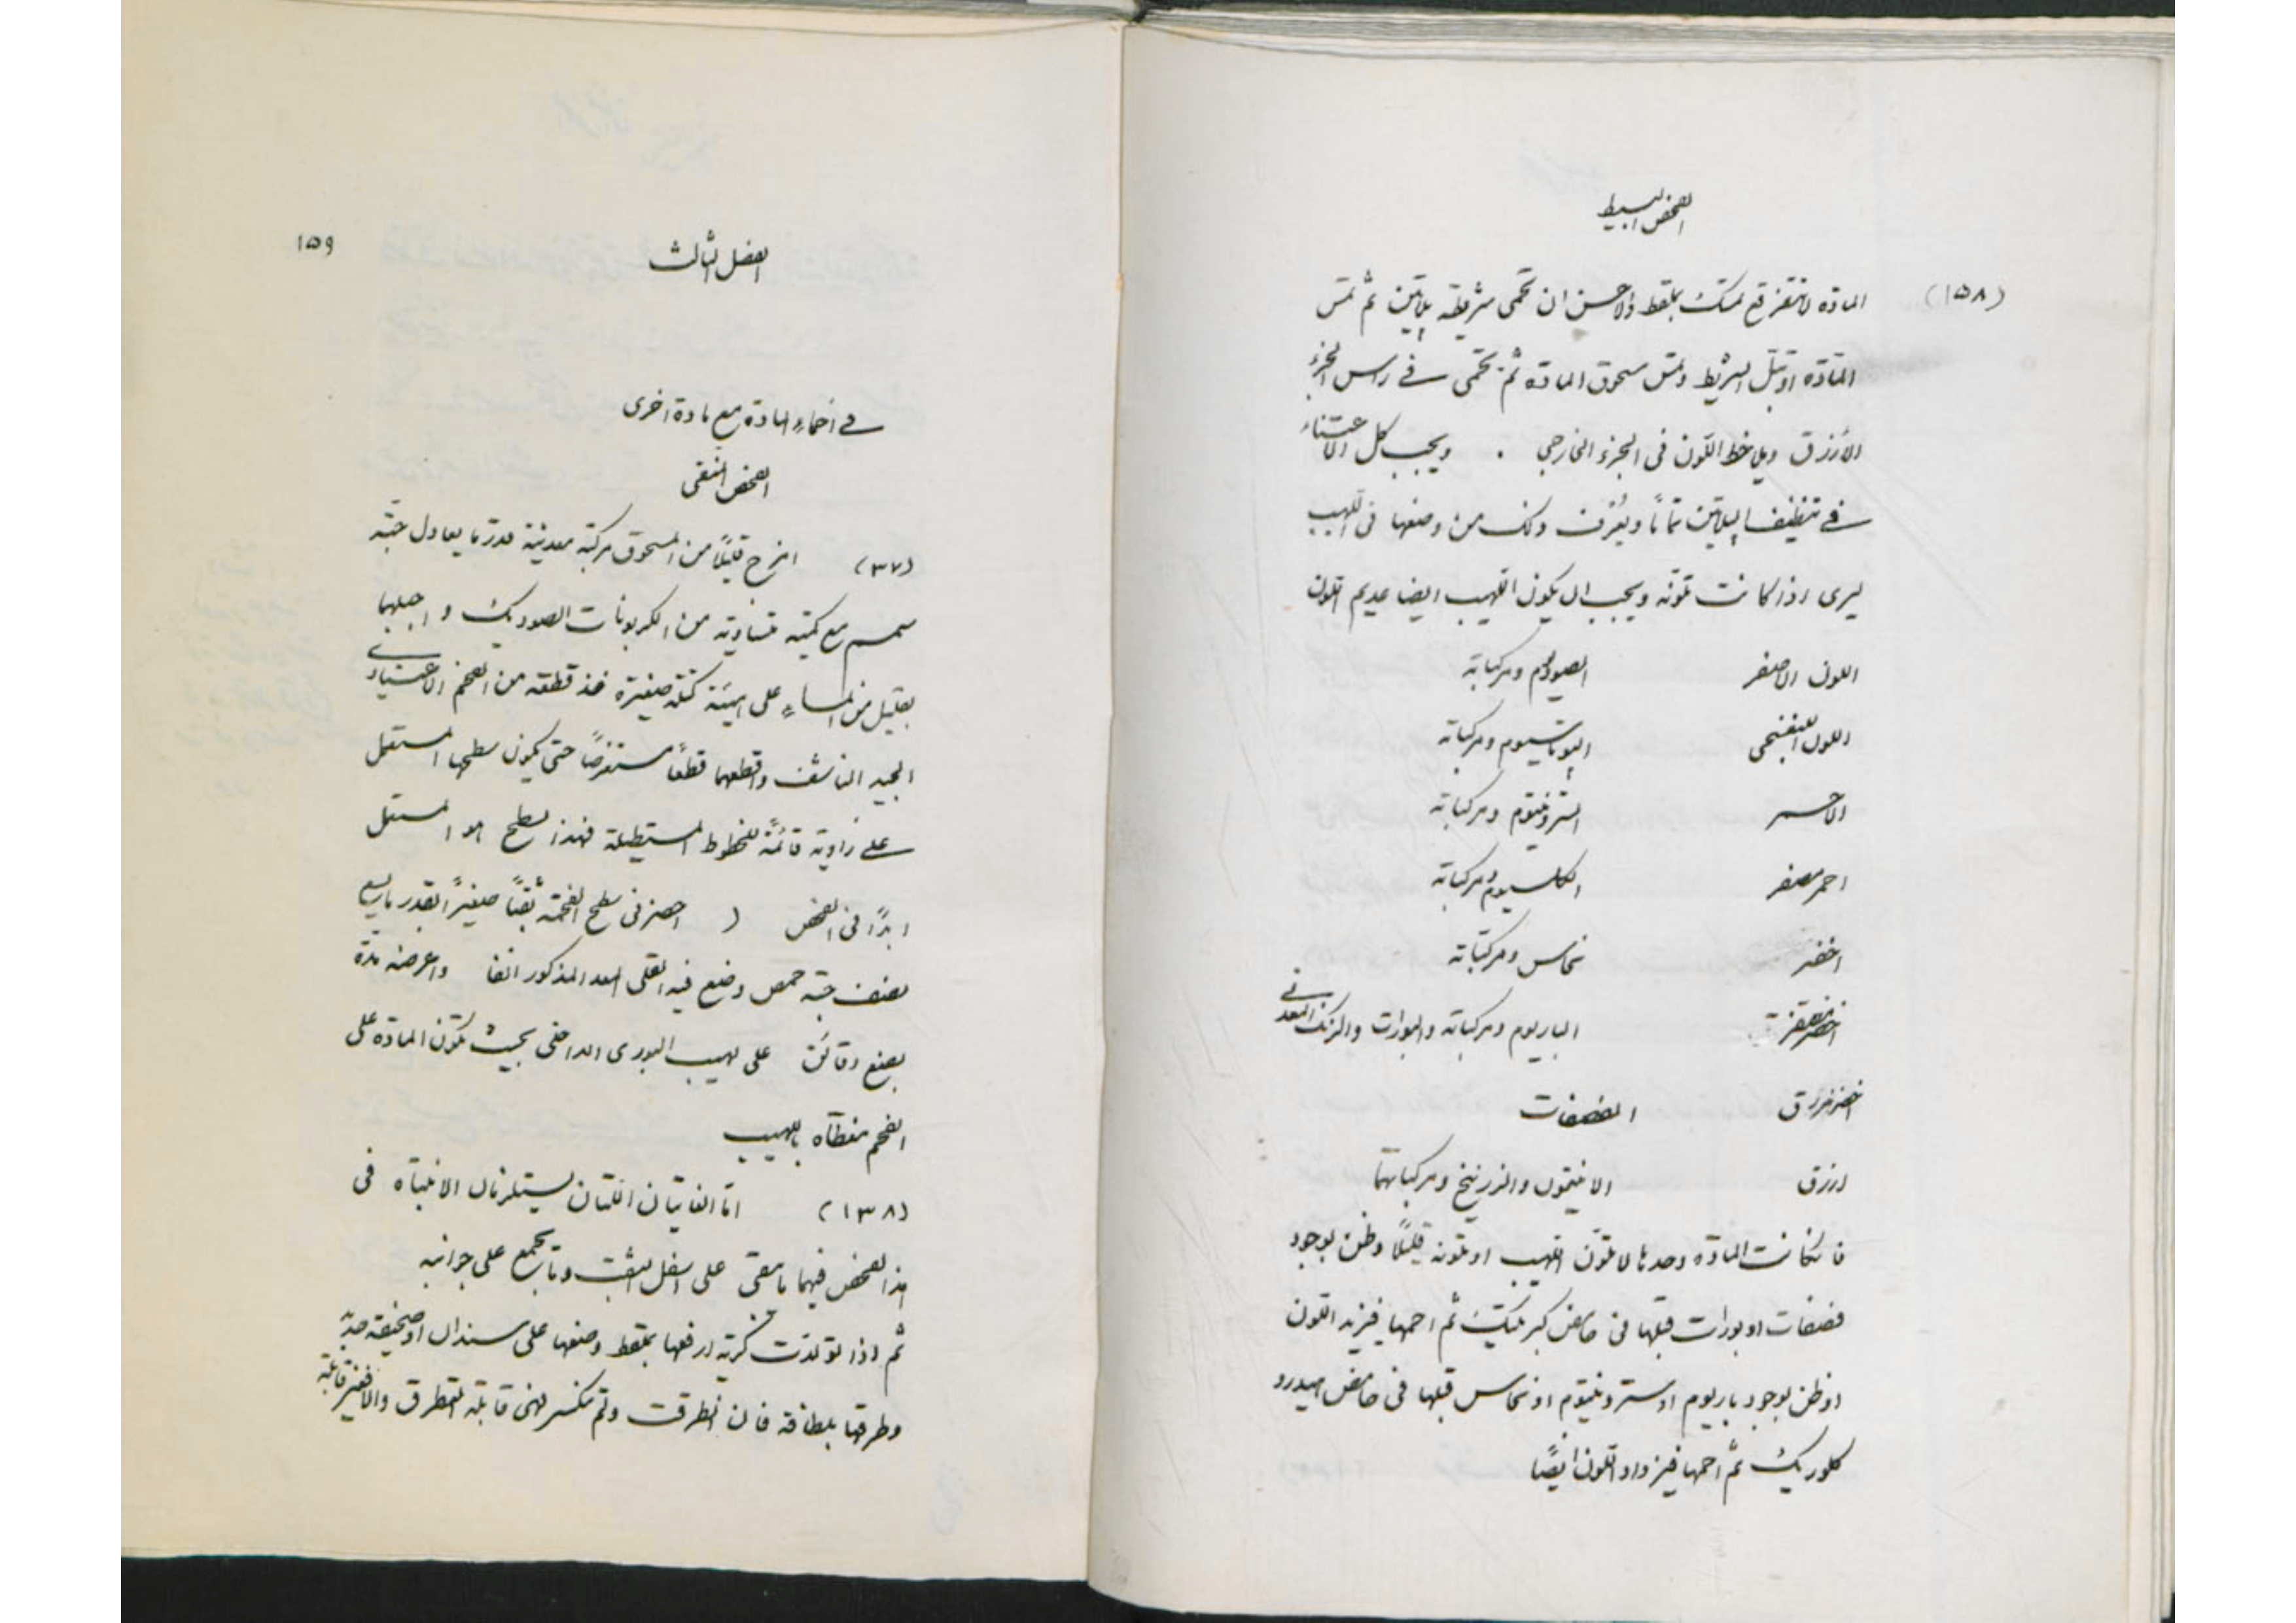 الفحص البسيط
(١٥٨)
المادة لا تتفرقع تمسك بملقط والاحسن ان تحمى شريطة پلاتين ثم تمس
المادّة او تبلّ الشريط وتمس مسحوق المادة ثم تحمى فى راس الجزء
الأزرق ويلاحظ اللّون فى الجزء الخارجى . ويجب كل الاعتناء
فى تنظيف الپلاتين تمامًا ويعرف ذلك من وضعها فى اللهيب
ليرى اذا كانت تلونه ويجب ان يكون اللهيب ايضا عديم اللون
اللون الاصفر الصوديوم ومركباته
اللون البنفسجى الپوتاسيوم ومركباته
الاحمر السترونتيوم ومركباته
احمر مصفر الكلسيوم ومركباته
اخضر نحاس ومركباته
اخضر مصفر الباريوم ومركباته والبورات والزنك المعدنى
اخضر مزرق الفصفات
ازرق الانتيمون والزرنيخ ومركباتهما
فانكانت المادّة وحدها لا تلوّن اللهيب او تلونه قليلًا وظن بوجود
فصفات او بورات فبلها فى حامض كبريتيك ثم احمها فيزيد اللون
او ظن بوجود باريوم او سترونتيوم او نحاس فبلها فى حامض هيدرو
كلوريك ثم احمها فيزداد اللون ايضًا
الفصل الثالث
١٥٩
فى احماء المادة مع مادة اخرى
الفحص النقى
(٣٧) امزج قليلًا من المسحوق مركبة معدنية قدر ما يعادل حبّة
سمسم مع كمية متساوية من الكربونات الصوديك واجبلهما
بقليل من الماء على هيئة كتلة صغيرة خذ قطعة من الفحم الاعتيادى
الجيد الناشف واقطعها قطعًا مستعرضًا حتى يكون سطحها المستعمل
على زاوية قائمة للخطوط المستطيلة فهذا السطح هو المستعمل
ابدًا فى الفحص ( احفر فى سطح الفحمة ثقبًا صغيرًا بقدر ما يسع
نصف حبّة حمص وضع فيه القلى المعد المذكور انفا واعرضه مدة
بضع دقائق على لهيب البورى الداخلى بحيث تكون المادة على
الفحم مغطاة باللهيب
(١٣٨) امّا الغايتان اللتان يستلزمان الانتباه فى
هذا الفحص فهما ما بقى على اسفل الثقب وما تجمع على جوانبه
ثم اذا تولدت كرية ارفعها بملقط وضعها على سندال او صحيفة
وطرقها بلطافة فان انطرقت ولم تنكسر فهى قابلة التطرق والا فغير قابلة